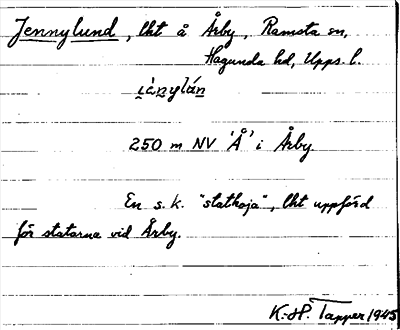 Jennylund, lht å Årby, Ramsta sn,
Hagunda hd, Upps. l.
i̯ènylán
250 m NV 'Å' i Årby.
En s.k. "statkoja", lht uppförd
för statarna vid Årby.
K.-H. Tapper 1945